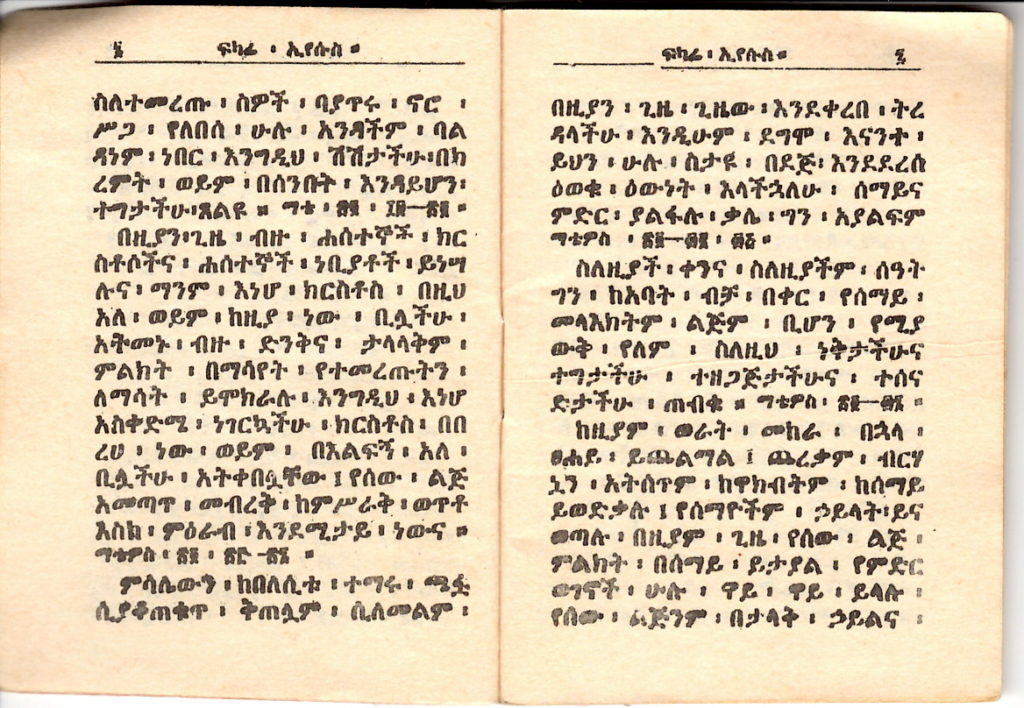 ፮ ፍካሬ ፡ ኢየሱስ ።
ስለተመረጡ ፡ ሰዎች ፡ ባያጥሩ ፡ ኖሮ ፡
ሥጋ ፡ የለበሰ ፡ ሁሉ ፡ አንዳችም ፡ ባል
ዳነም ፡ ነበር ፡ እንግዲህ ፡ ሽሽታችሁ ፡ በክ
ረምት ፡ ወይም ፡ በሰንበት ፡ እንዳይሆን ፡
ተግታችሁ ፡ ጸልዩ ። ማቴ ፡ ፳፬ ፡
በዚያን ፡ ጊዜ ፡ ብዙ ፡ ሐሰተኞች ፡ ክር
ስቶሶችና ፡ ሐሰተኞች ፡ ነቢያቶች ፡ ይነሣ
ሉና ፡ ማንም ፡ እነሆ ፡ ክርስቶስ ፡ በዚህ
አለ ፡ ወይም ፡ ከዚያ ፡ ነው ፡ ቢሏችሁ ፡
አትመኑ ፡ ብዙ ፡ ድንቅና ፡ ታላላቅም ፡
ምልክት ፡ በማሳየት ፡ የተመረጡትን ፡
ለማሳት ፡ ይሞክራሉ ፡ እንግዲህ ፡ እነሆ
አስቀድሜ ፡ ነገርኳችሁ ፡ ክርስቶስ ፡ በበ
ረሀ ፡ ነው ፡ ወይም ፡ በእልፍኝ ፡ አለ ፡
ቢሏችሁ ፡ አትቀበሏቸው ፤ የሰው ፡ ልጅ
አመጣጥ ፡ መብረቅ ፡ ከምሥራቅ ፡ ወጥቶ
እስከ ፡ ምዕራብ ፡ እንደሚታይ ፡ ነውና ።
ማቴዎስ ፡ ፳፬ ፡ ።
ምሳሌውን ፡ ከበለሲቱ ፡ ተማሩ ፡ ጫፏ
ሲያቆጠቁጥ ፡ ቅጠሏም ፡ ሲለመልም ፡
ፍካሬ ፡ ኢየሱስ ። ፯
በዚያን ፡ ጊዜ ፡ ጊዜው ፡ እንደቀረበ ፡ ትረ
ዳላችሁ ፡ እንዲሁም ፡ ደግሞ ፡ እናንተ ፡
ይህን ፡ ሁሉ ፡ ስታዩ ፡ በደጅ ፡ እንደደረሰ
ዕወቁ ፡ ዕውነት ፡ እላችኋለሁ ፡ ሰማይና
ምድር ፡ ያልፋሉ ፡ ቃሌ ፡ ግን ፡ አያልፍም
ማቴዎስ ፡ ።
ስለዚያች ፡ ቀንና ፡ ስለዚያችም ፡ ሰዓት
ግን ፡ ከአባት ፡ ብቻ ፡ በቀር ፡ የሰማይ ፡
መላእክትም ፡ ልጅም ፡ ቢሆን ፡ የሚያ
ውቅ ፡ የለም ፡ ስለዚህ ፡ ነቅታችሁና
ተግታችሁ ፡ ተዘጋጅታችሁና ፡ ተሰና
ድታችሁ ፡ ጠብቁ ። ማቴዎስ ፡ ።
ከዚያም ፡ ወራት ፡ መከራ ፡ በኋላ ፡
ፀሐይ ፡ ይጨልማል ፤ ጨረቃም ፡ ብርሃ
ኗን ፡ አትሰጥም ፡ ከዋክብትም ፡ ከሰማይ
ይወድቃሉ ፤ የሰማዮችም ፡ ኃይላት ፡ ይና
ወጣሉ ፡ በዚያም ፡ ጊዜ ፡ የሰው ፡ ልጅ ፡
ምልክት ፡ በሰማይ ፡ ይታያል ፡ የምድር
ወገኖች ፡ ሁሉ ፡ ዋይ ፡ ዋይ ፡ ይላሉ ፡
የሰው ፡ ልጅንም ፡ በታላቅ ፡ ኃይልና ፡